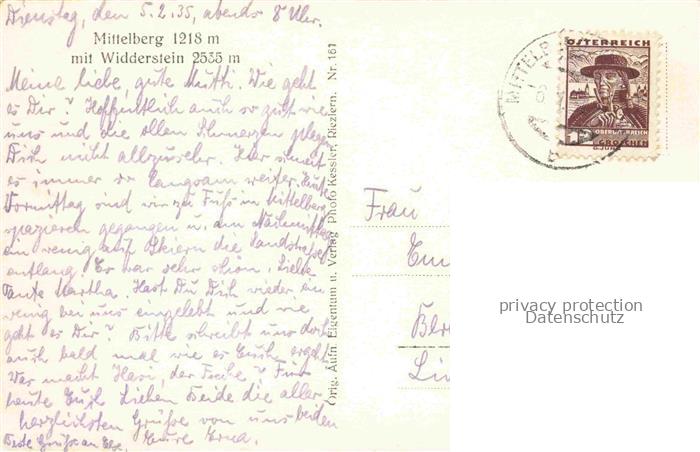 Dienstag, den 5.2.35, abends 8 Uhr.
Mittelberg 1218 m
mit Widderstein 2535 m
Meine liebe, gute Mutti. Wie geht
es Dir? Hoffentlich auch so gut wie
uns und die ollen Schmerzen plagen
Dich nicht allzusehr. Hier schneit
es immer so langsam weiter. Heute
Vormittag sind wir zu Fuß in Mittelberg
spazieren gegangen u. am Nachmittag
ein wenig auf Skiern die Landstraße
entlang. Es war sehr schön. Liebe
Tante Martha. Hast Du Dich wieder ein
wenig bei uns eingelebt und wie
geht es Dir? Bitte schreibt uns doch
auch bald mal wie es Euch ergeht.
Was macht Hasi, der Freche? Für
heute Euch lieben Beide die aller-
herzlichsten Grüße von uns beiden
Beste Grüße an Else. Eure Erna.
Orig. Aufn. Eigentum u. Verlag Photo Kessler, Riezlern. Nr. 161
MITTELB
ÖSTERREICH
OBERÖSTERREICH
GROSCHEN
Frau
Em
privacy protection
Datenschutz